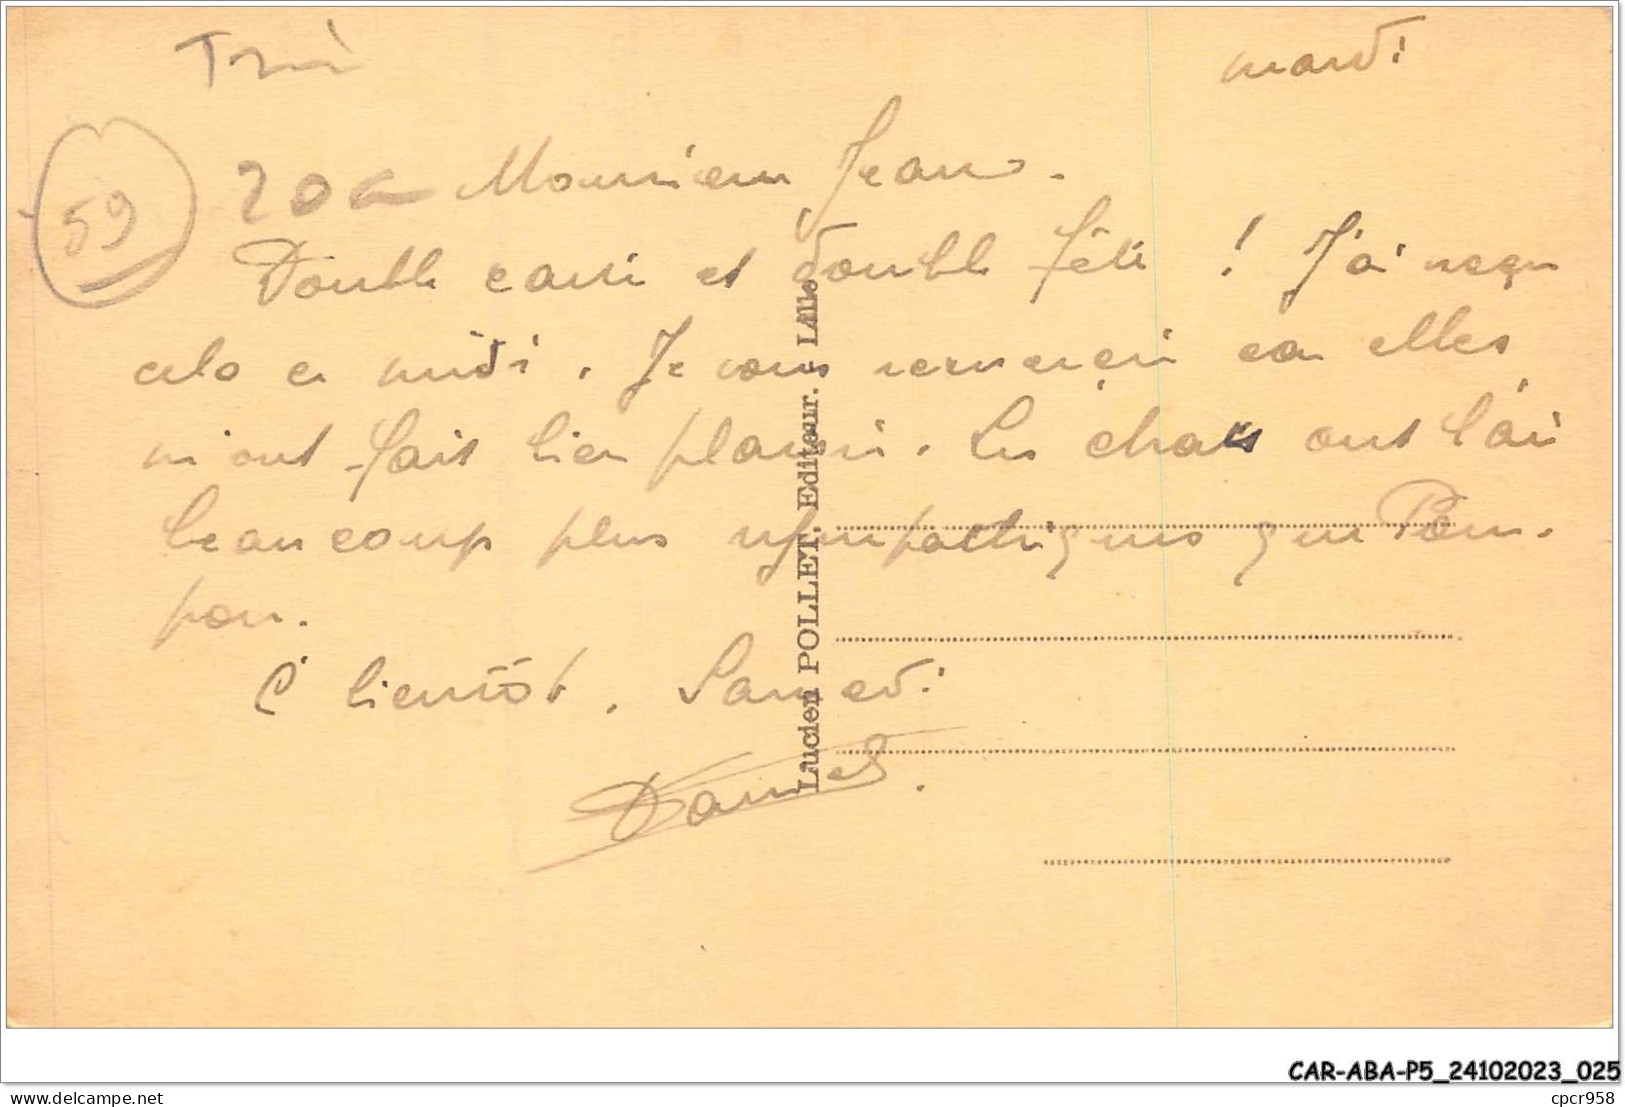 mardi
59
Monsieur Jean.
Double et double fête ! J'ai reçu
cela ce midi. Je vous remercie car elles
m'ont fait bien plaisir. Les chats ont l'air
beaucoup plus sympathiques que Pom-
pon.
A bientôt. Samedi
Daniel.
Lucien POLLET, Editeur. - Lille
CAR-ABA-P5_24102023_025
delcampe.net
cpcr958